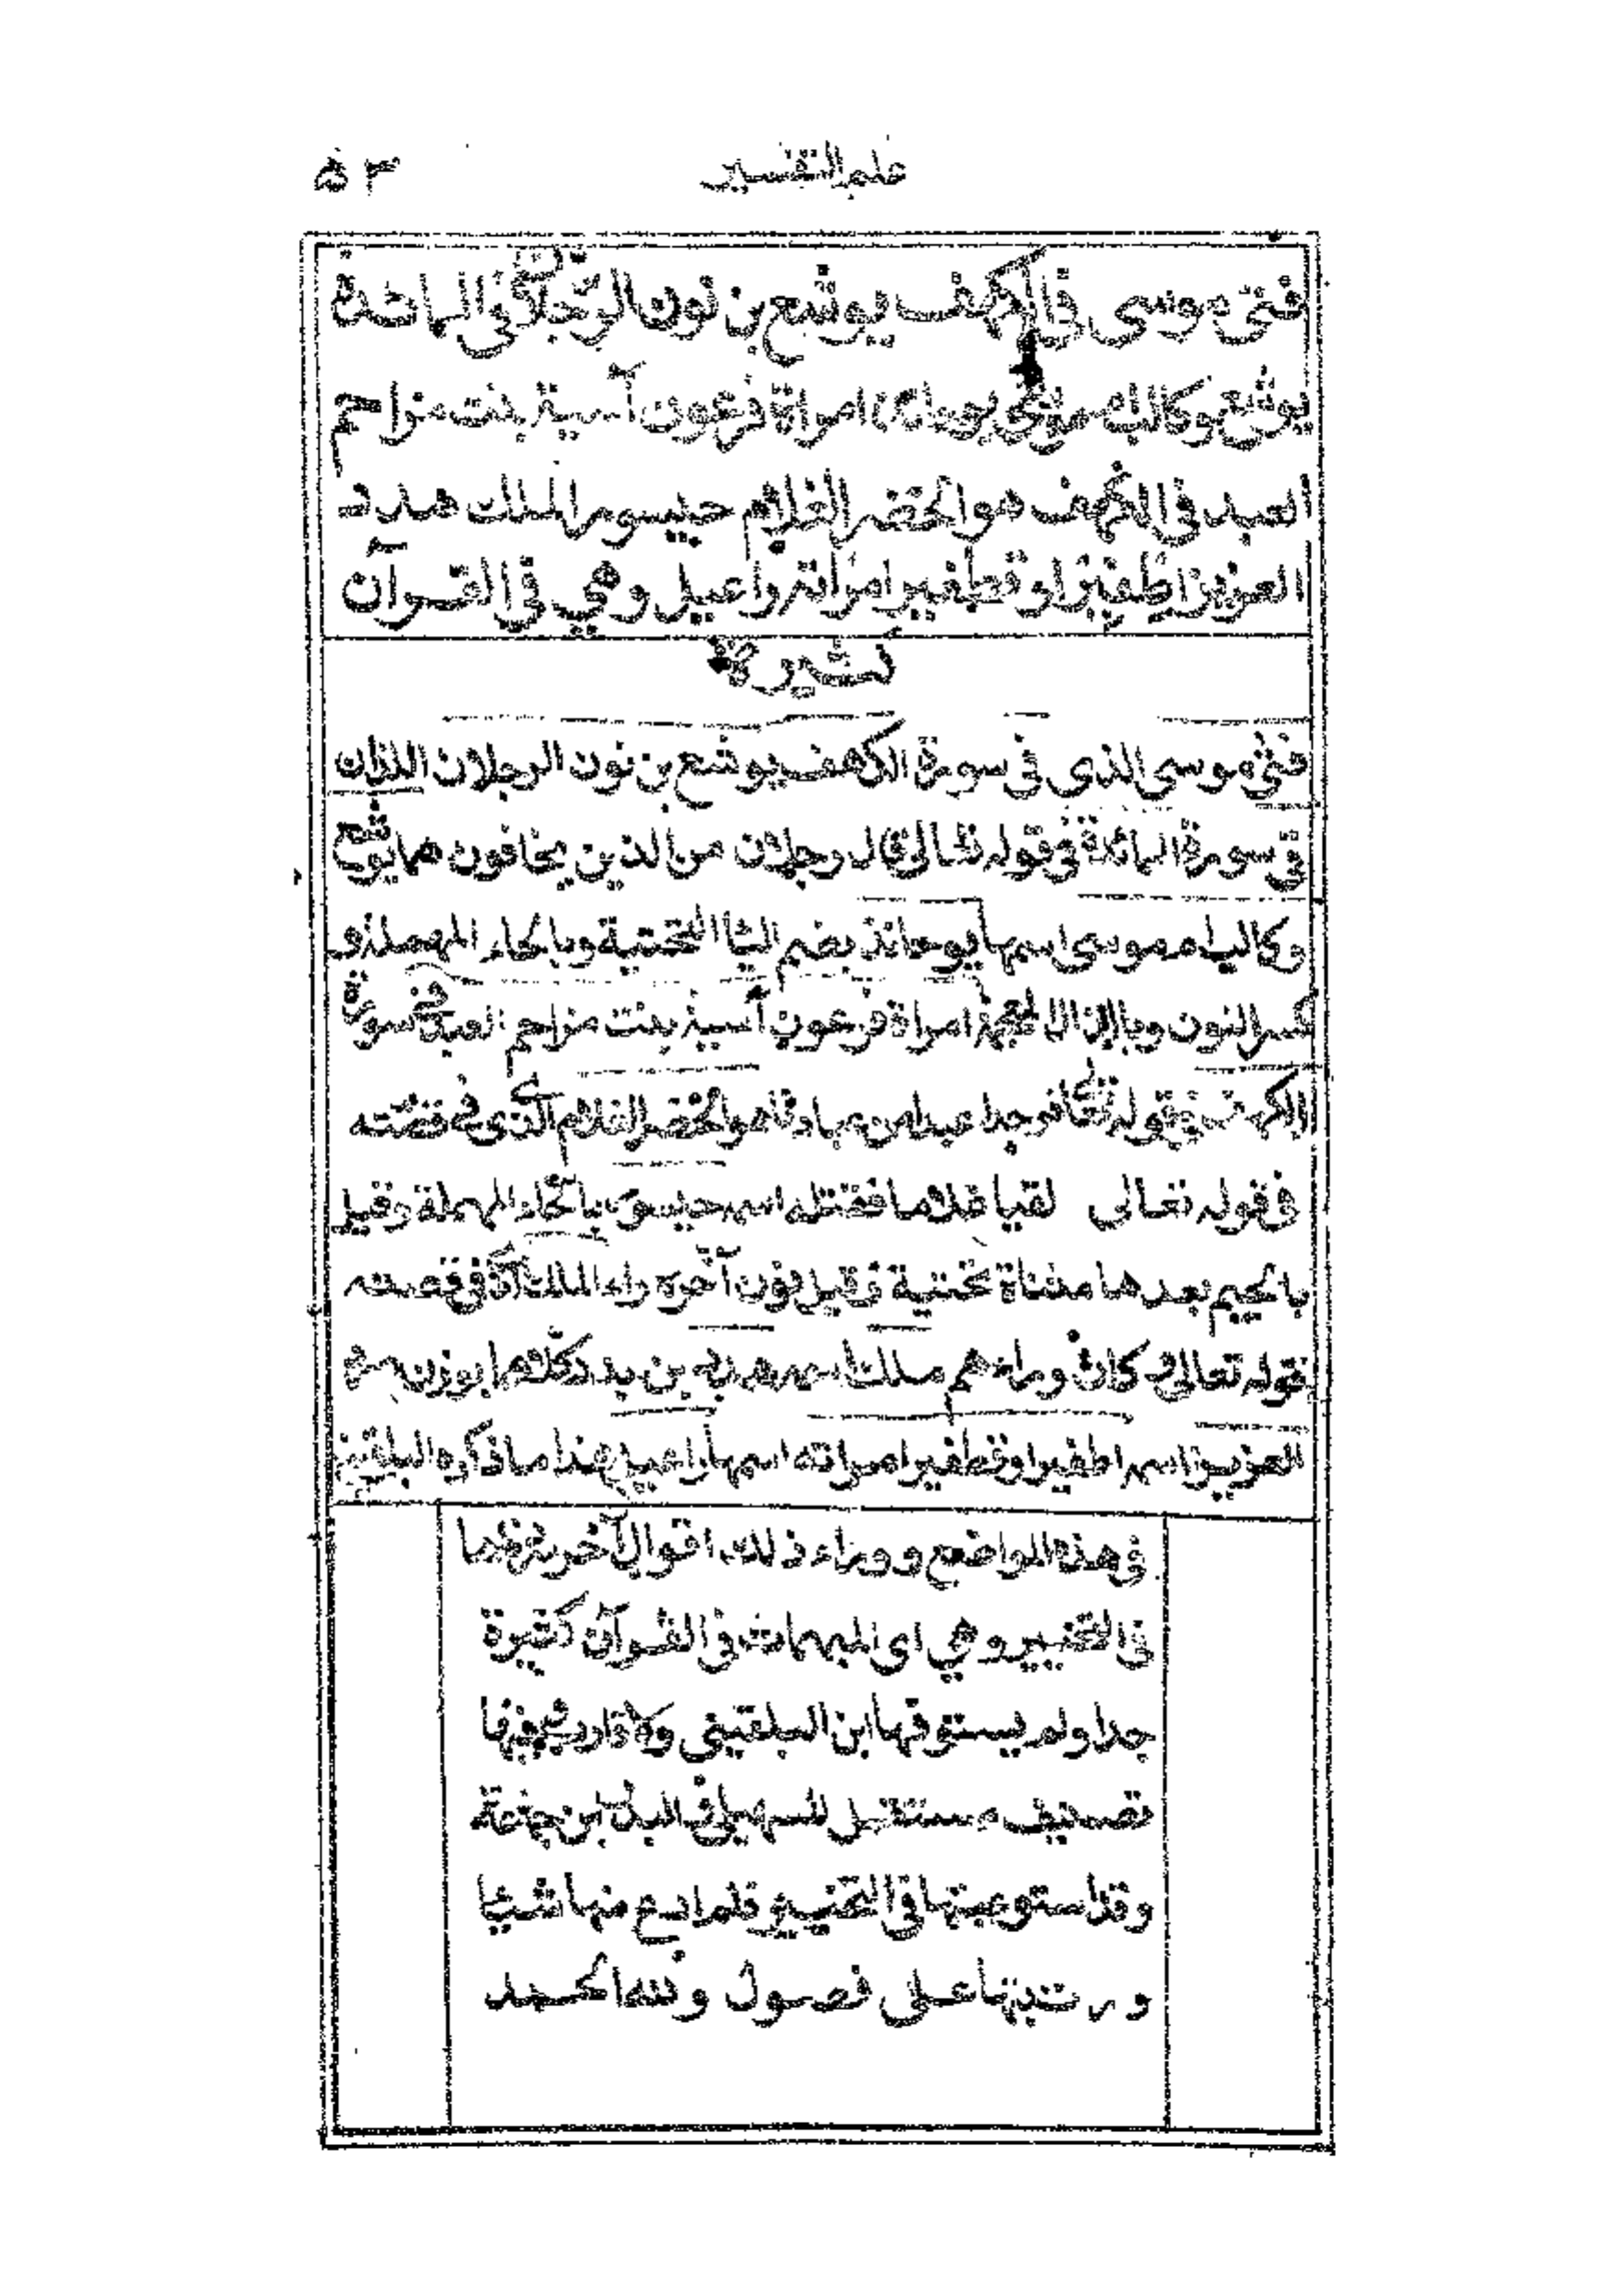 علم التفسير
۵۳
فتى موسى في الكهف يوشع بن نون الرجلان في المائدة
يوشع وكالب ام موسى يوحانذ امراة فرعون آسية بنت مزاحم
العبد في الكهف هو الخضر الغلام حيسور الملك هدد
العزيز اطفير او قطفير امراته راعيل وهي في القرآن
كثيرة
فتى موسى الذي في سورة الكهف يوشع بن نون الرجلان اللذان
في سورة المائدة في قوله تعالى قال رجلان من الذين يخافون هما يوشع
وكالب ام موسى اسمها يوحانذ بضم اليا التحتية وبالحاء المهملة و
كسر النون وبالذال المعجمة امراة فرعون آسية بنت مزاحم العبد في سورة
الكهف في قوله تعالى فوجدا عبدا من عبادنا هو الخضر الغلام الذي في قصته
في قوله تعالى لقيا غلاما فقتله اسمه حيسور بالحاء المهملة وقيل
بالجيم بعدها مثناة تحتية وقيل نون آخره راء الملك الذي في قصته
قوله تعالى وكان وراءهم ملك اسمه هدد بن بدد كلاهما بوزن
العزيز اسمه اطفير او قطفير امراته اسمها راعيل هذا ما ذكره البلقيني
في هذه المواضع ووراء ذلك اقوال آخر بيناها
في التحبير وهي اى المبهمات في القرآن كثيرة
جدا ولم يستوفها ابن البلقيني وفيها
تصنيف مستقل للسهيلي والبدر ابن جماعة
وقد استوعبتها في التحبير فلم ادع منها شيئا
ورتبتها على فصول ولله الحمد